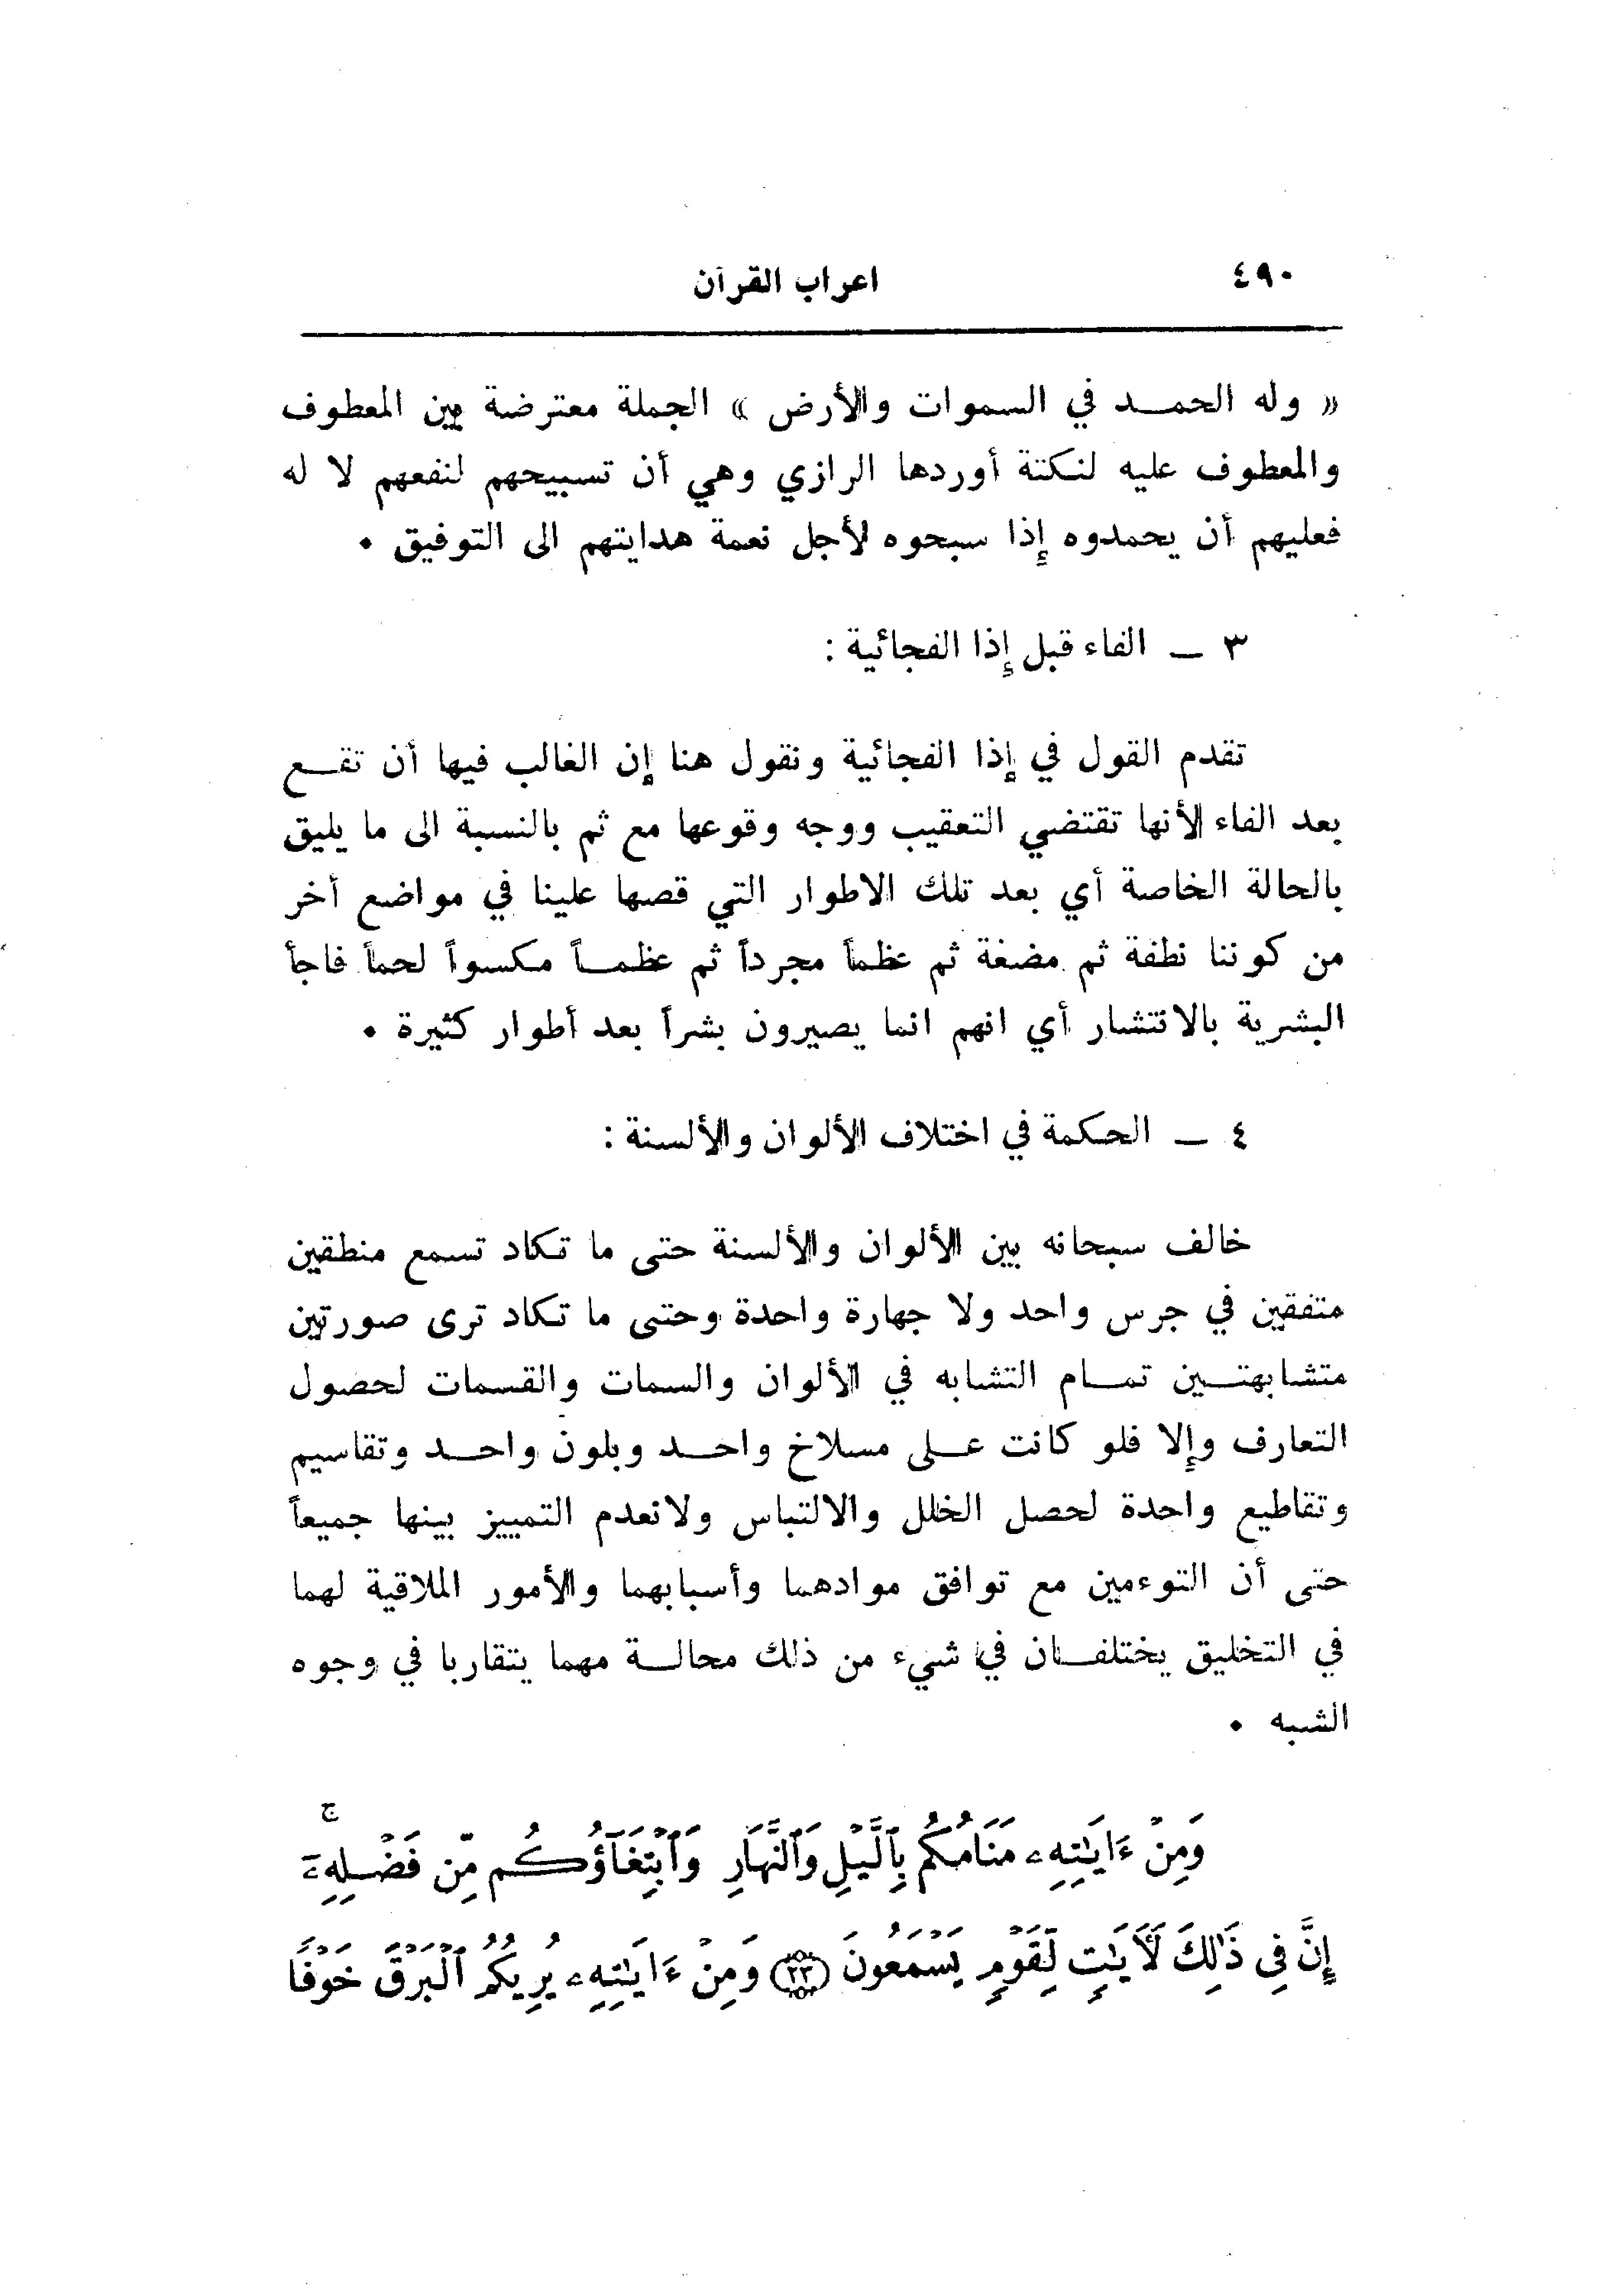 ٤٩٠
اعراب القرآن
« وله الحمـــد في السموات والأرض » الجملة معترضة بين المعطوف
والمعطوف عليه لنكتة أوردها الرازي وهي أن تسبيحهم لنفعهم لا له
فعليهم أن يحمدوه إذا سبحوه لأجل نعمة هدايتهم الى التوفيق •
٣ ــ الفاء قبل إذا الفجائية :
تقدم القول في إذا الفجائية ونقول هنا إن الغالب فيها أن تقــع
بعد الفاء لأنها تقتضي التعقيب ووجه وقوعها مع ثم بالنسبة الى ما يليق
بالحالة الخاصة أي بعد تلك الاطوار التي قصها علينا في مواضع أخر
من كوننا نطفة ثم مضغة ثم عظماً مجرداً ثم عظمــاً مكسواً لحماً فاجأ
البشرية بالانتشار أي انهم انما يصيرون بشراً بعد أطوار كثيرة •
٤ ــ الحكمة في اختلاف الألوان والألسنة :
خالف سبحانه بين الألوان والألسنة حتى ما تكاد تسمع منطقين
متفقين في جرس واحد ولا جهارة واحدة وحتى ما تكاد ترى صورتين
متشابهتــين تمــام التشابه في الألوان والسمات والقسمات لحصول
التعارف وإلا فلو كانت عــلى مسلاخ واحــد وبلون واحــد وتقاسيم
وتقاطيع واحدة لحصل الخلل والالتباس ولانعدم التمييز بينها جميعاً
حتى أن التوءمين مع توافق موادهما وأسبابهما والأمور الملاقية لهما
في التخليق يختلفــان في شيء من ذلك محالــة مهما يتقاربا في وجوه
الشبه •
وَمِنْ ءَايَٰتِهِۦ مَنَامُكُم بِٱلَّيْلِ وَٱلنَّهَارِ وَٱبْتِغَآؤُكُم مِّن فَضْلِهِۦٓ ۚ
إِنَّ فِى ذَٰلِكَ لَأٓيَٰتٍ لِّقَوْمٍ يَسْمَعُونَ (٢٣) وَمِنْ ءَايَٰتِهِۦ يُرِيكُمُ ٱلْبَرْقَ خَوْفًا